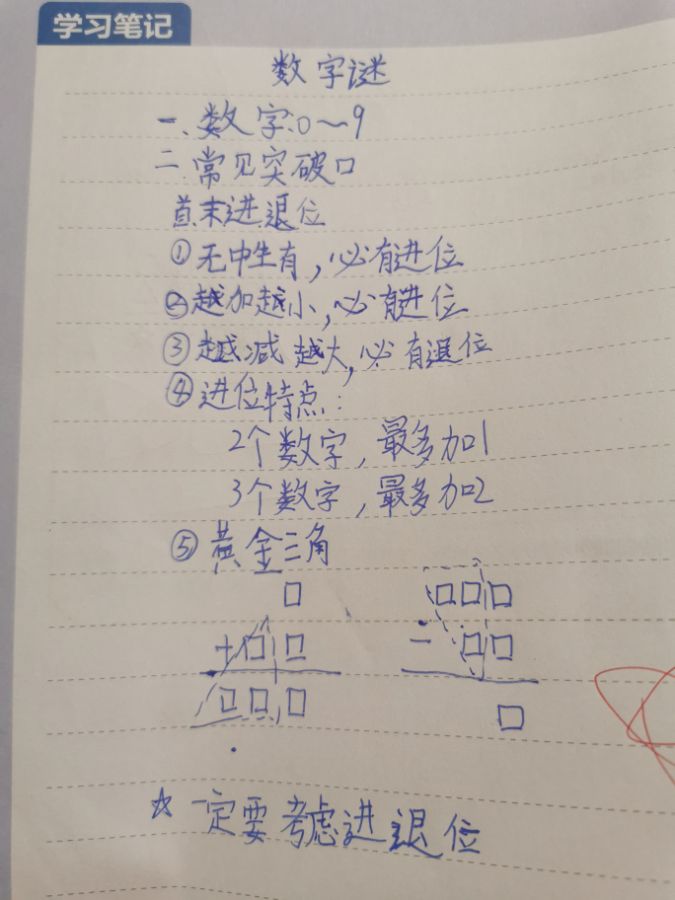 学习笔记
数字谜
一、数字:0～9
二、常见突破口
首末进退位
①无中生有,必有进位
②越加越小,必有进位
③越减越大,必有退位
④进位特点:
2个数字,最多加1
3个数字,最多加2
⑤黄金三角
□ □□□
+□□ - □□
□□□ □
☆一定要考虑进退位